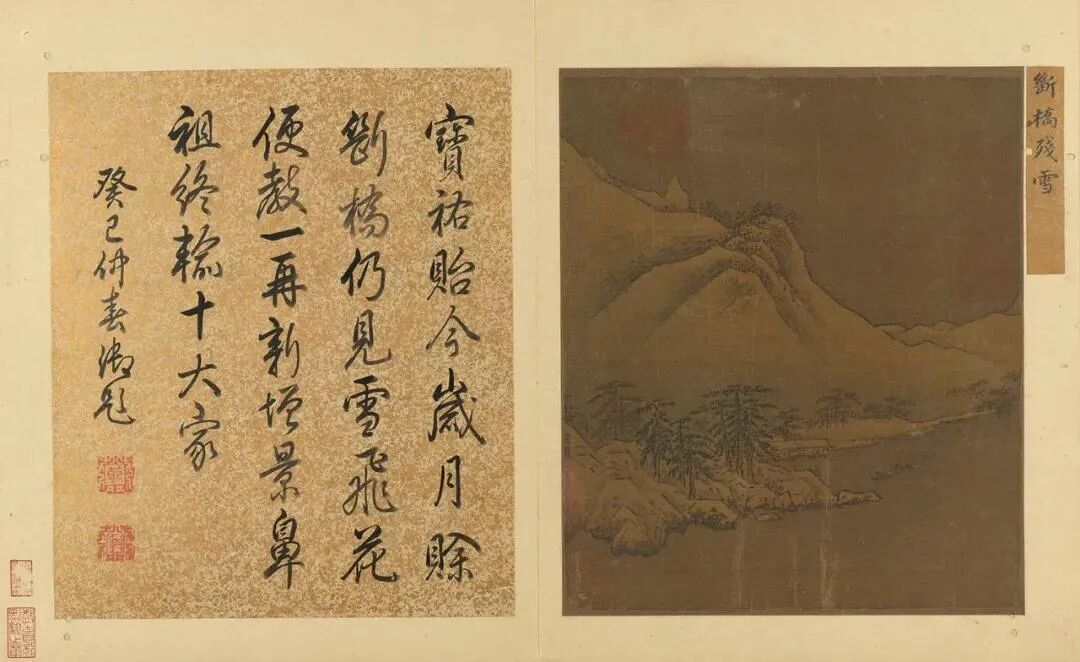 斷橋殘雪
寶祐貽今歲月賖
斷橋仍見雪飛花
便教一再新增景鼻
祖終輸十大家
癸巳仲春御題